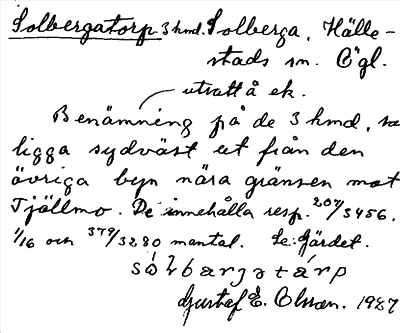 Solbergatorp 3 hmd. Solberga, Hälle-
stads sn. Ögl.
utsatt å ek.
Benämning på de 3 hmd, som
ligga sydväst ut från den
övriga byn nära gränsen mot
Tjällmo. De innehålla resp. 207/3456,
1/16 och 379/3280 mantal. Se: Gärdet.
Gustaf E. Olsson. 1927